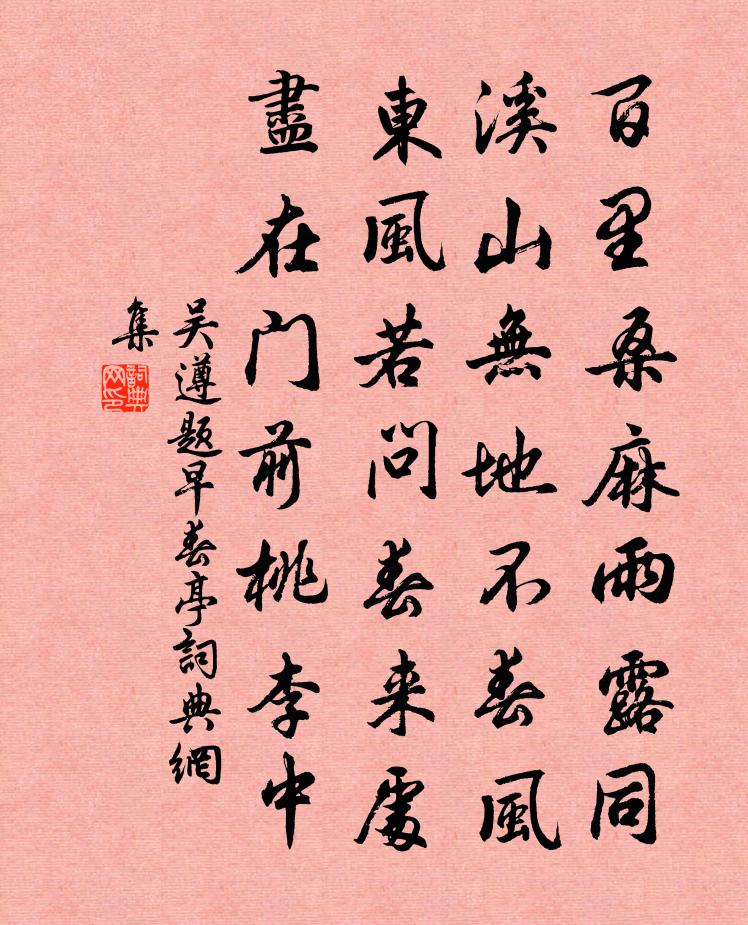 百里桑麻雨露同
溪山無地不春風
東風若問春来處
盡在門前桃李中
吴遵题早春亭詞典網
集
詞典
网印